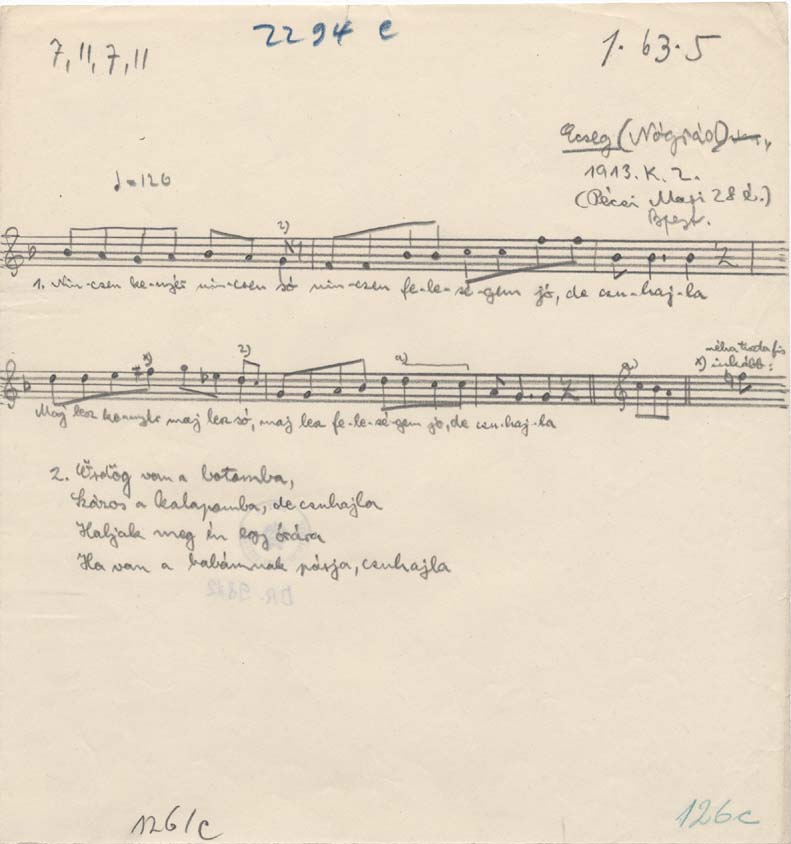 2294 c
7, 11, 7, 11
1. 63. 5
Ecseg (Nógrád)
1913. K. Z.
(Pécei Mari 28 é.)
Bpest.
♩=120
2)
1. Nin-csen ke-nyér nin-csen só nin-csen fe-le-sé-gem jó, de csu-haj-la
x) 2) a) a)
néha tiszta fis
x) inkább:
Maj lesz kenyér maj lesz só, maj lesz fe-le-sé-gem jó, de csu-haj-la
2. Ördög van a botomba,
Káros a kalapomba, de csuhajla
Haljak meg én egy órára
Ha van a babámnak párja, csuhajla
DR. 9812
126/c
126c